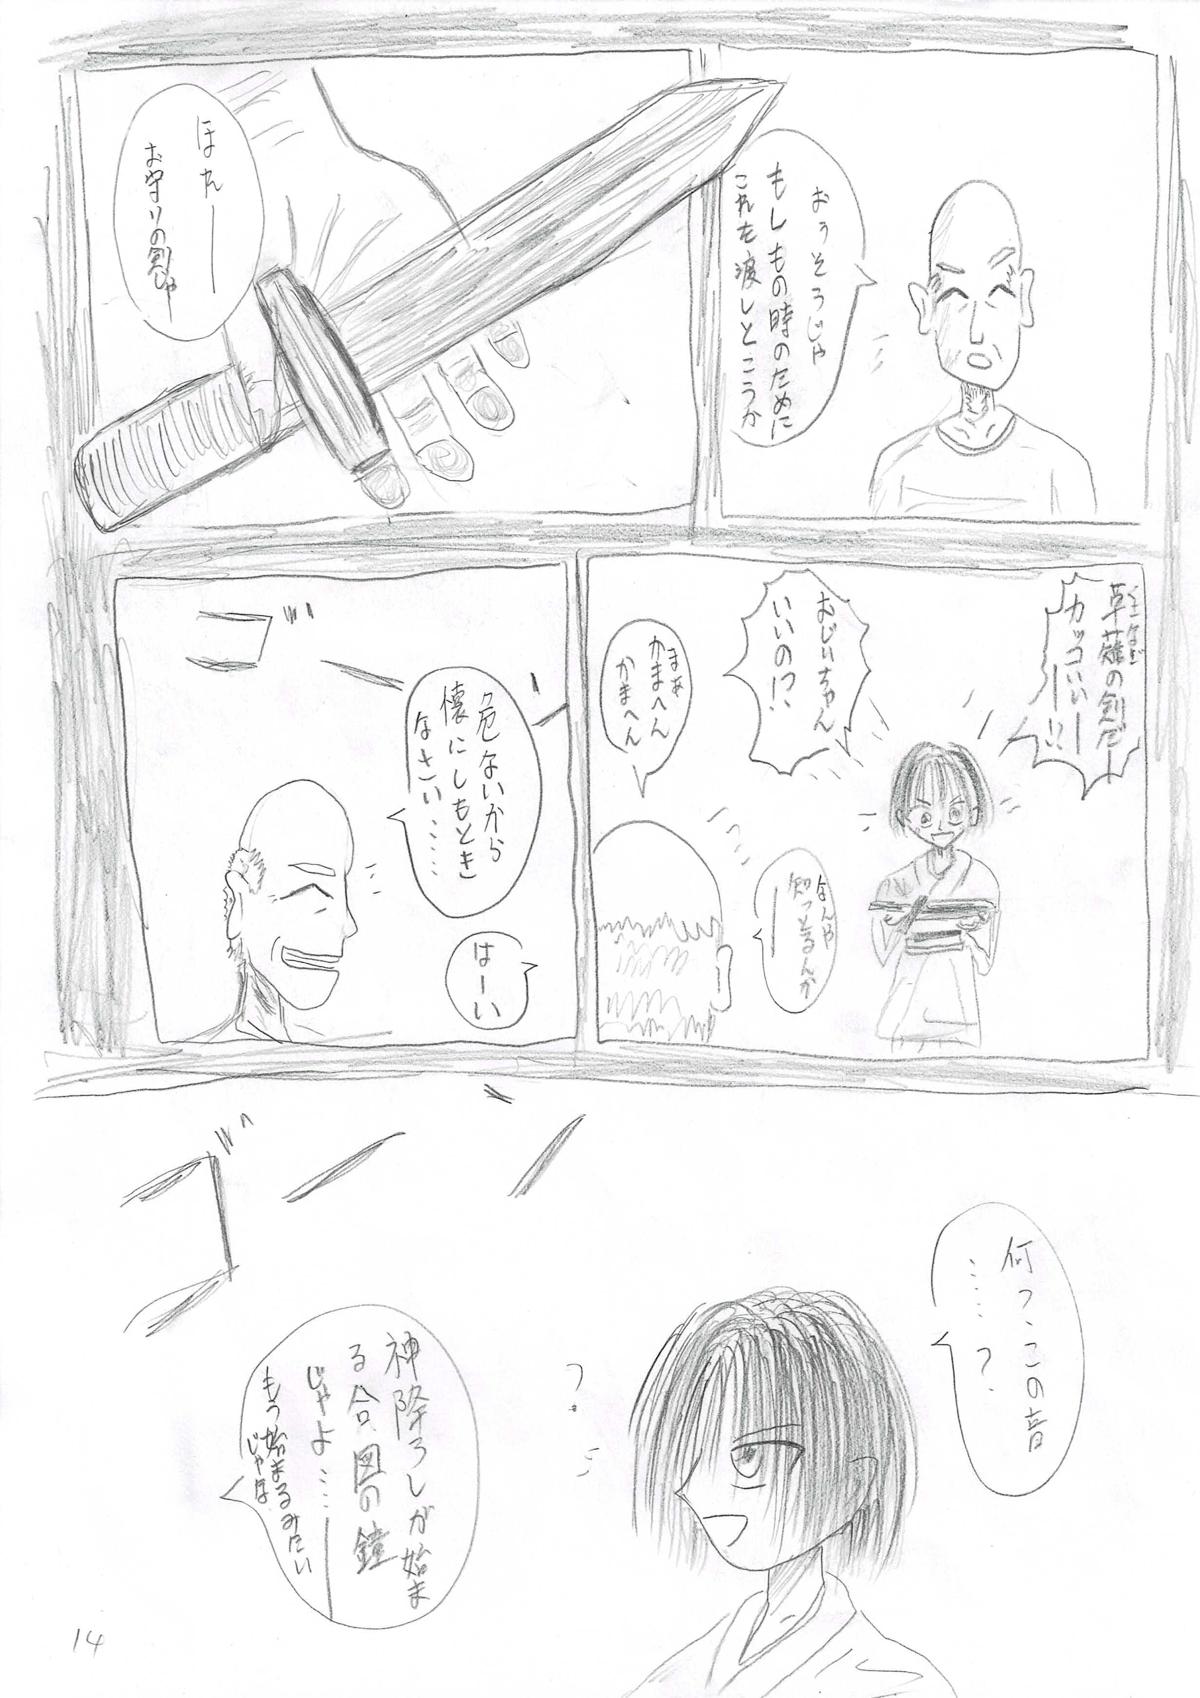 おうそうじゃ
もしもの時のために
これを渡しとこうか
ほれー
お守りの剣じゃ
草薙の剣だー
くさなぎ
カッコいいー!!
おじいちゃん
いいの!?
まぁ
かまへん
かまへん
なんや
知っとるんか
危ないから
懐にしもとき
なさい……
はーい
ゴーン
何っこの音
……?
?
ゴーン
神降ろしが始ま
る合図の鐘
じゃよ…
もう始まるみたい
じゃな
14